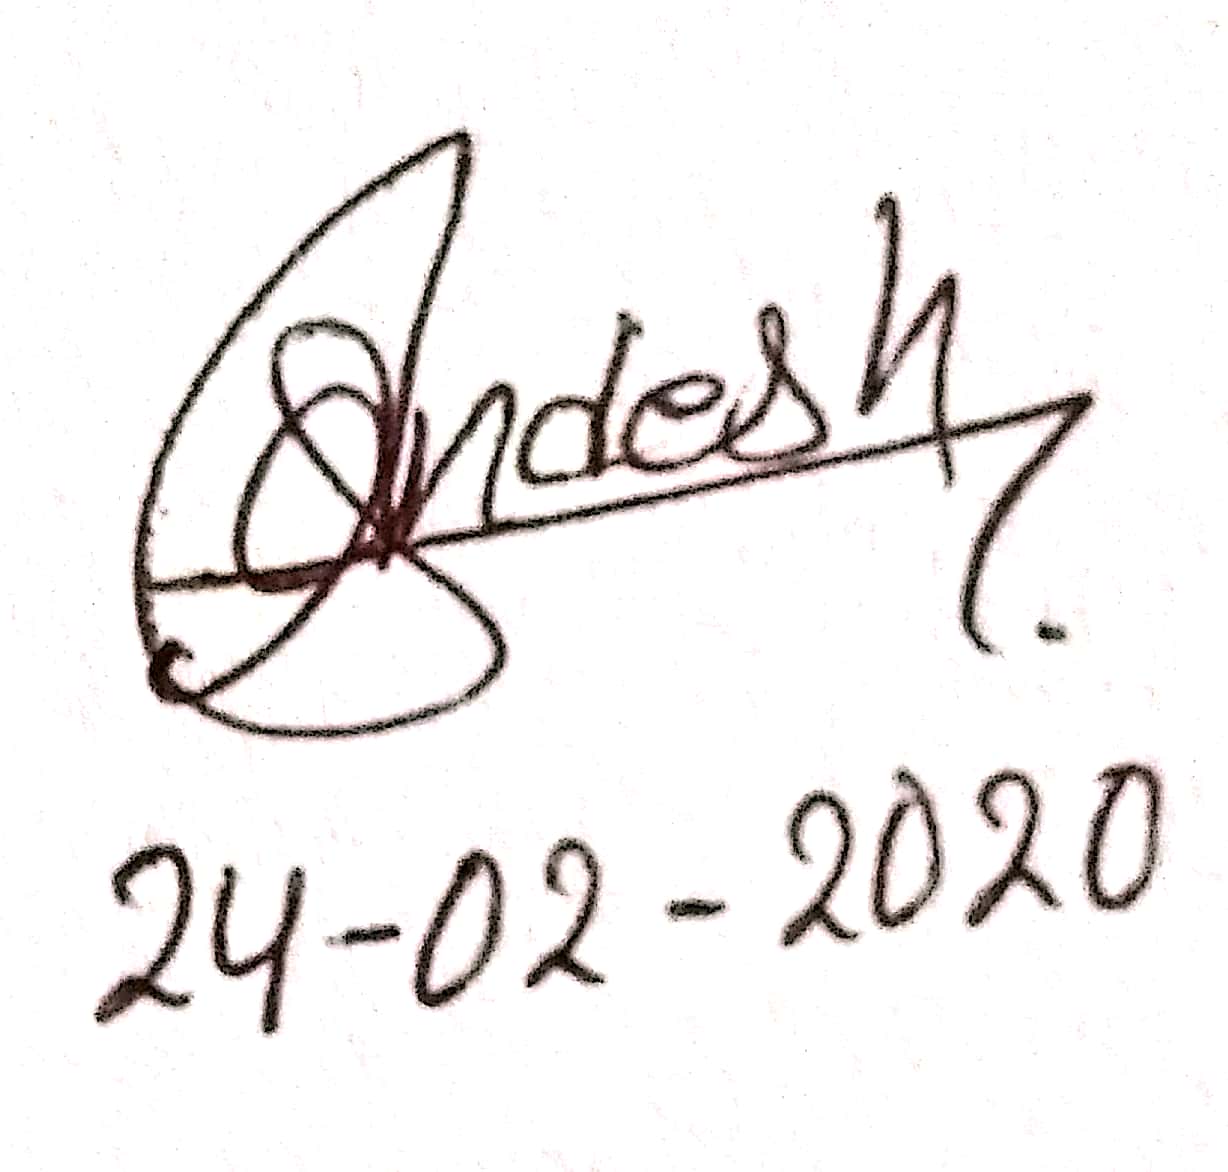 Sandesh
24-02-2020